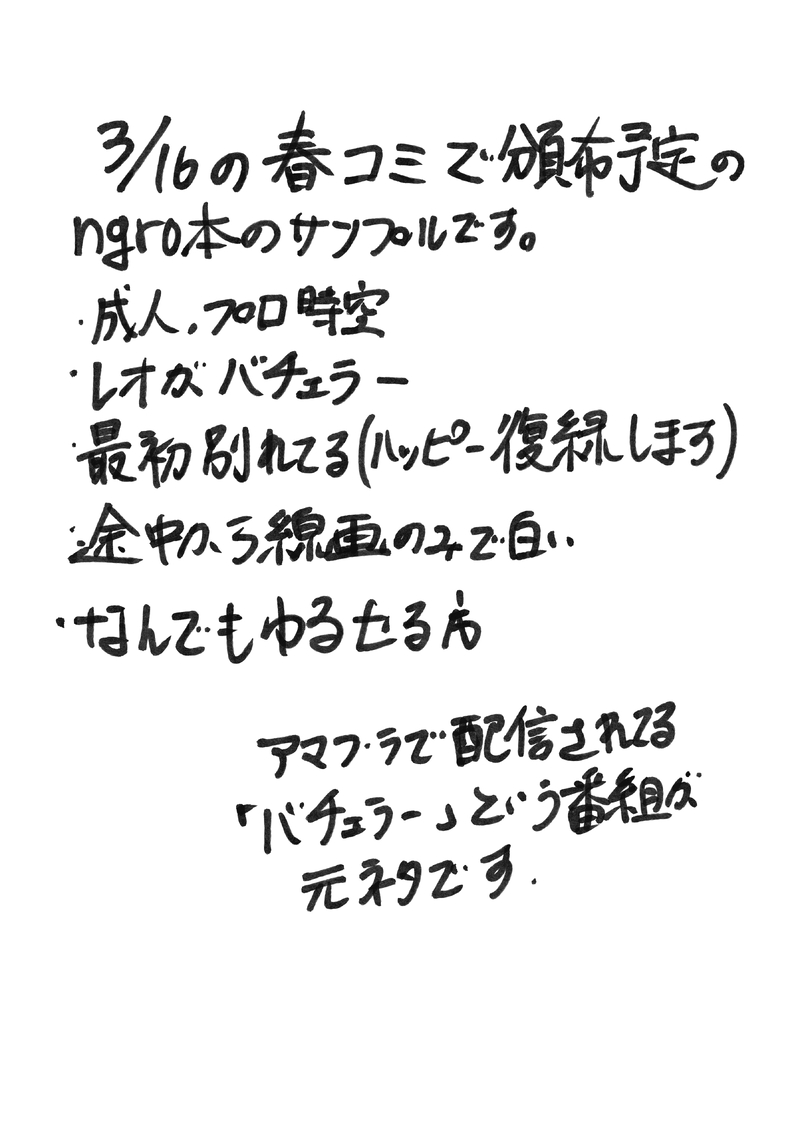 3/16の春コミで頒布予定の
ngro本のサンプルです。
・成人、プロ時空
・レオがバチェラー
・最初別れてる(ハッピー復縁します)
・途中から線画のみで白い
・なんでもゆるせる方
アマプラで配信されてる
「バチェラー」という番組が
元ネタです.